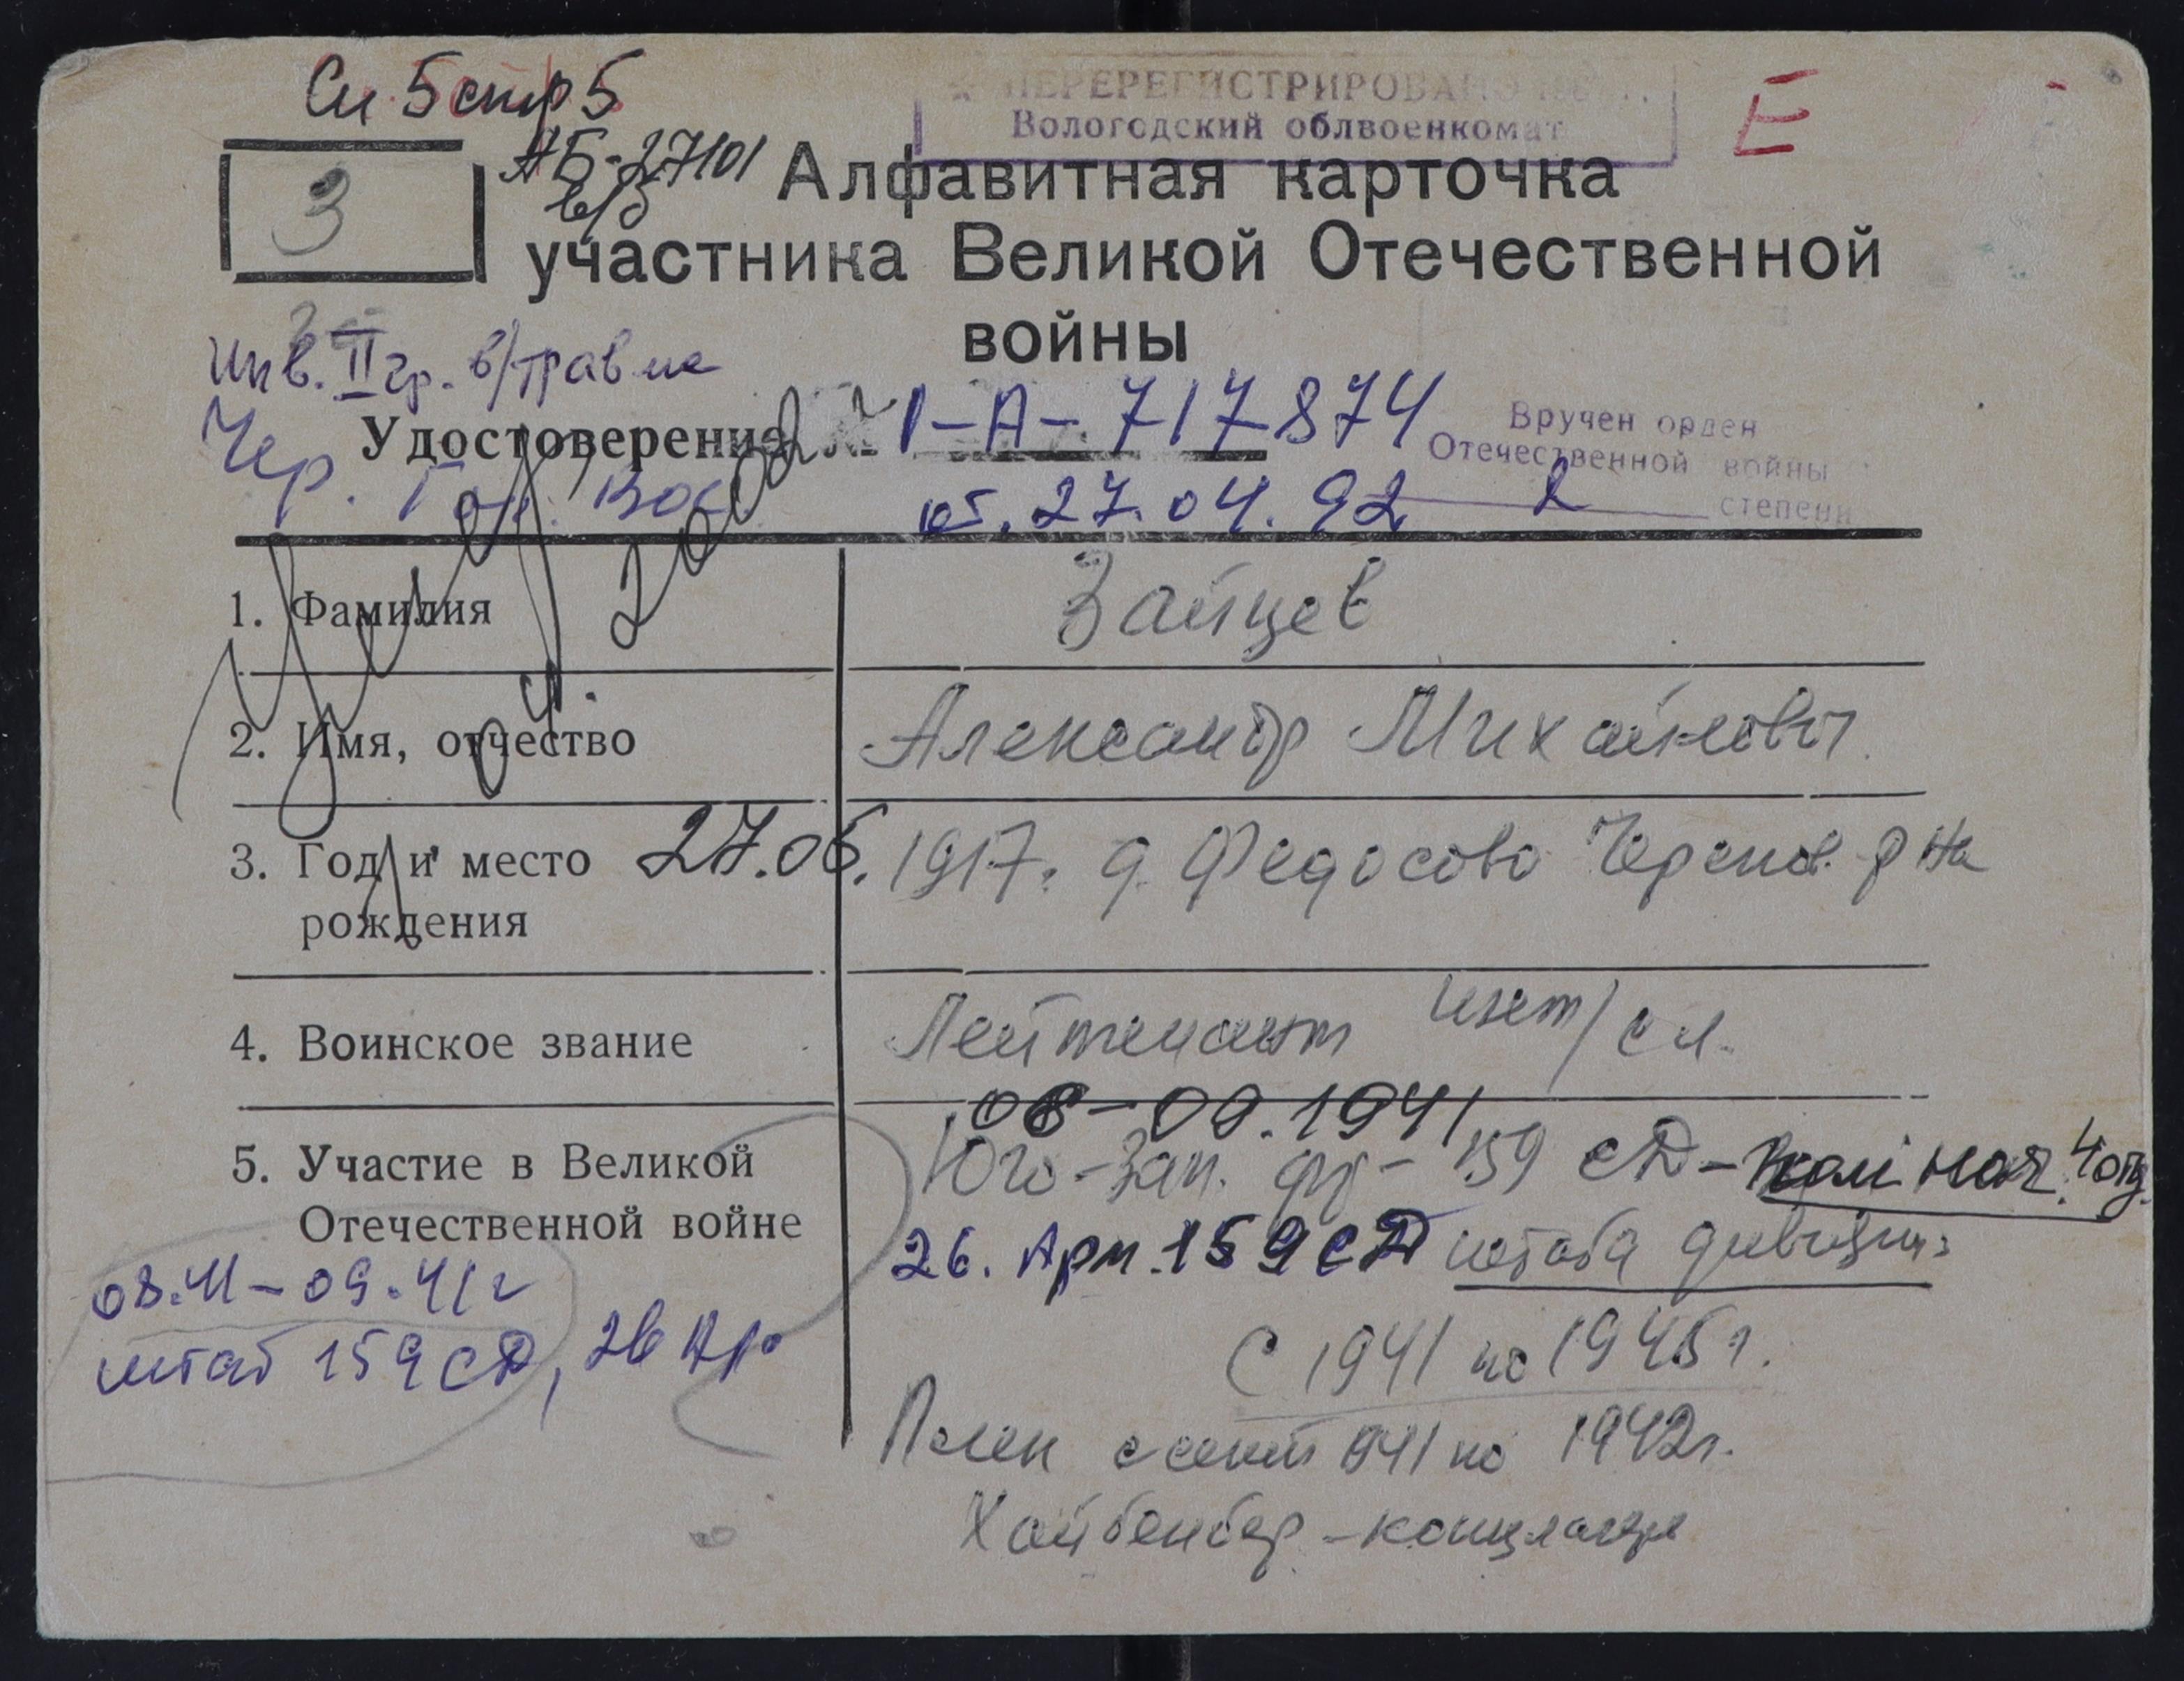 Сп 5 стр 5
ПЕРЕРЕГИСТРИРОВАНО
Вологодский облвоенкомат
Е
З
АБ-27101
в/б
Алфавитная карточка
участника Великой Отечественной
войны
Инв. II гр. в/травма
Удостоверение № 1-А-717874
Вручен орден
Отечественной войны
2 степени
Чер. Гор. Вос.
от. 27.04.92
Умер 2002
1. Фамилия Зайцев
2. Имя, отчество Александр Михайлович
3. Год и место рождения 27.06. 1917г. д. Федосово Черепов. р на
4. Воинское звание Лейтенант инт/сл.
08-09.1941
5. Участие в Великой Отечественной войне
Юго-Зап. фр - 159 СД - пом нач. 4 отд.
26. Арм. 159 СД штаба дивизии
08.41-09.41 г
штаб 159 СД, 26 Ар
С 1941 по 1945 г.
Плен с сент 1941 по 1942г.
Хайбенбер - концлагерь